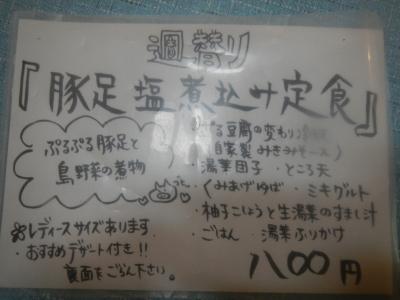 週替り
『豚足塩煮込み定食』
ぷるぷる豚足と
島野菜の煮物
る豆腐の変わり
自家製みきみそ
・湯葉団子 ・ところ天
・くみあげゆば ・ミキグルト
・柚子こしょうと生湯葉のすまし汁
・ごはん ・湯葉ふりかけ
レディースサイズあります
・おすすめデザート付き!!
裏面をごらん下さい。
八〇〇円